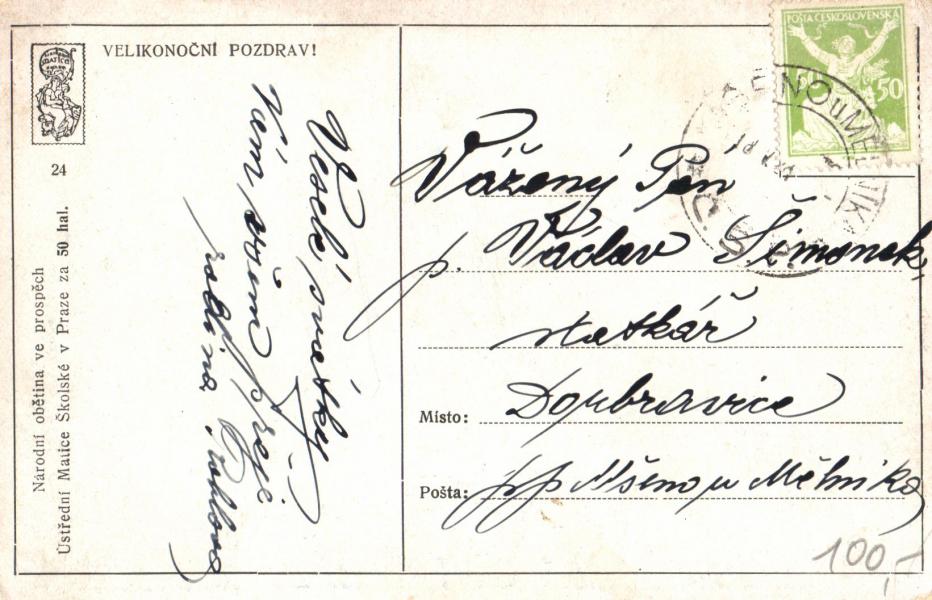 VELIKONOČNÍ POZDRAV!
MATICE
24
Národní obětina ve prospěch
Ústřední Matice Školské v Praze za 50 hal.
Veselé svátky
Vám všem přeje
rodina
POŠTA ČESKOSLOVENSKÁ
50 50
MŠENO U MĚLNÍKA
Č.S.P.
Vážený Pán
p. Václav Šimonek,
statkář
Místo: Doubravice
Pošta: pp Mšeno u Mělníka
100,-